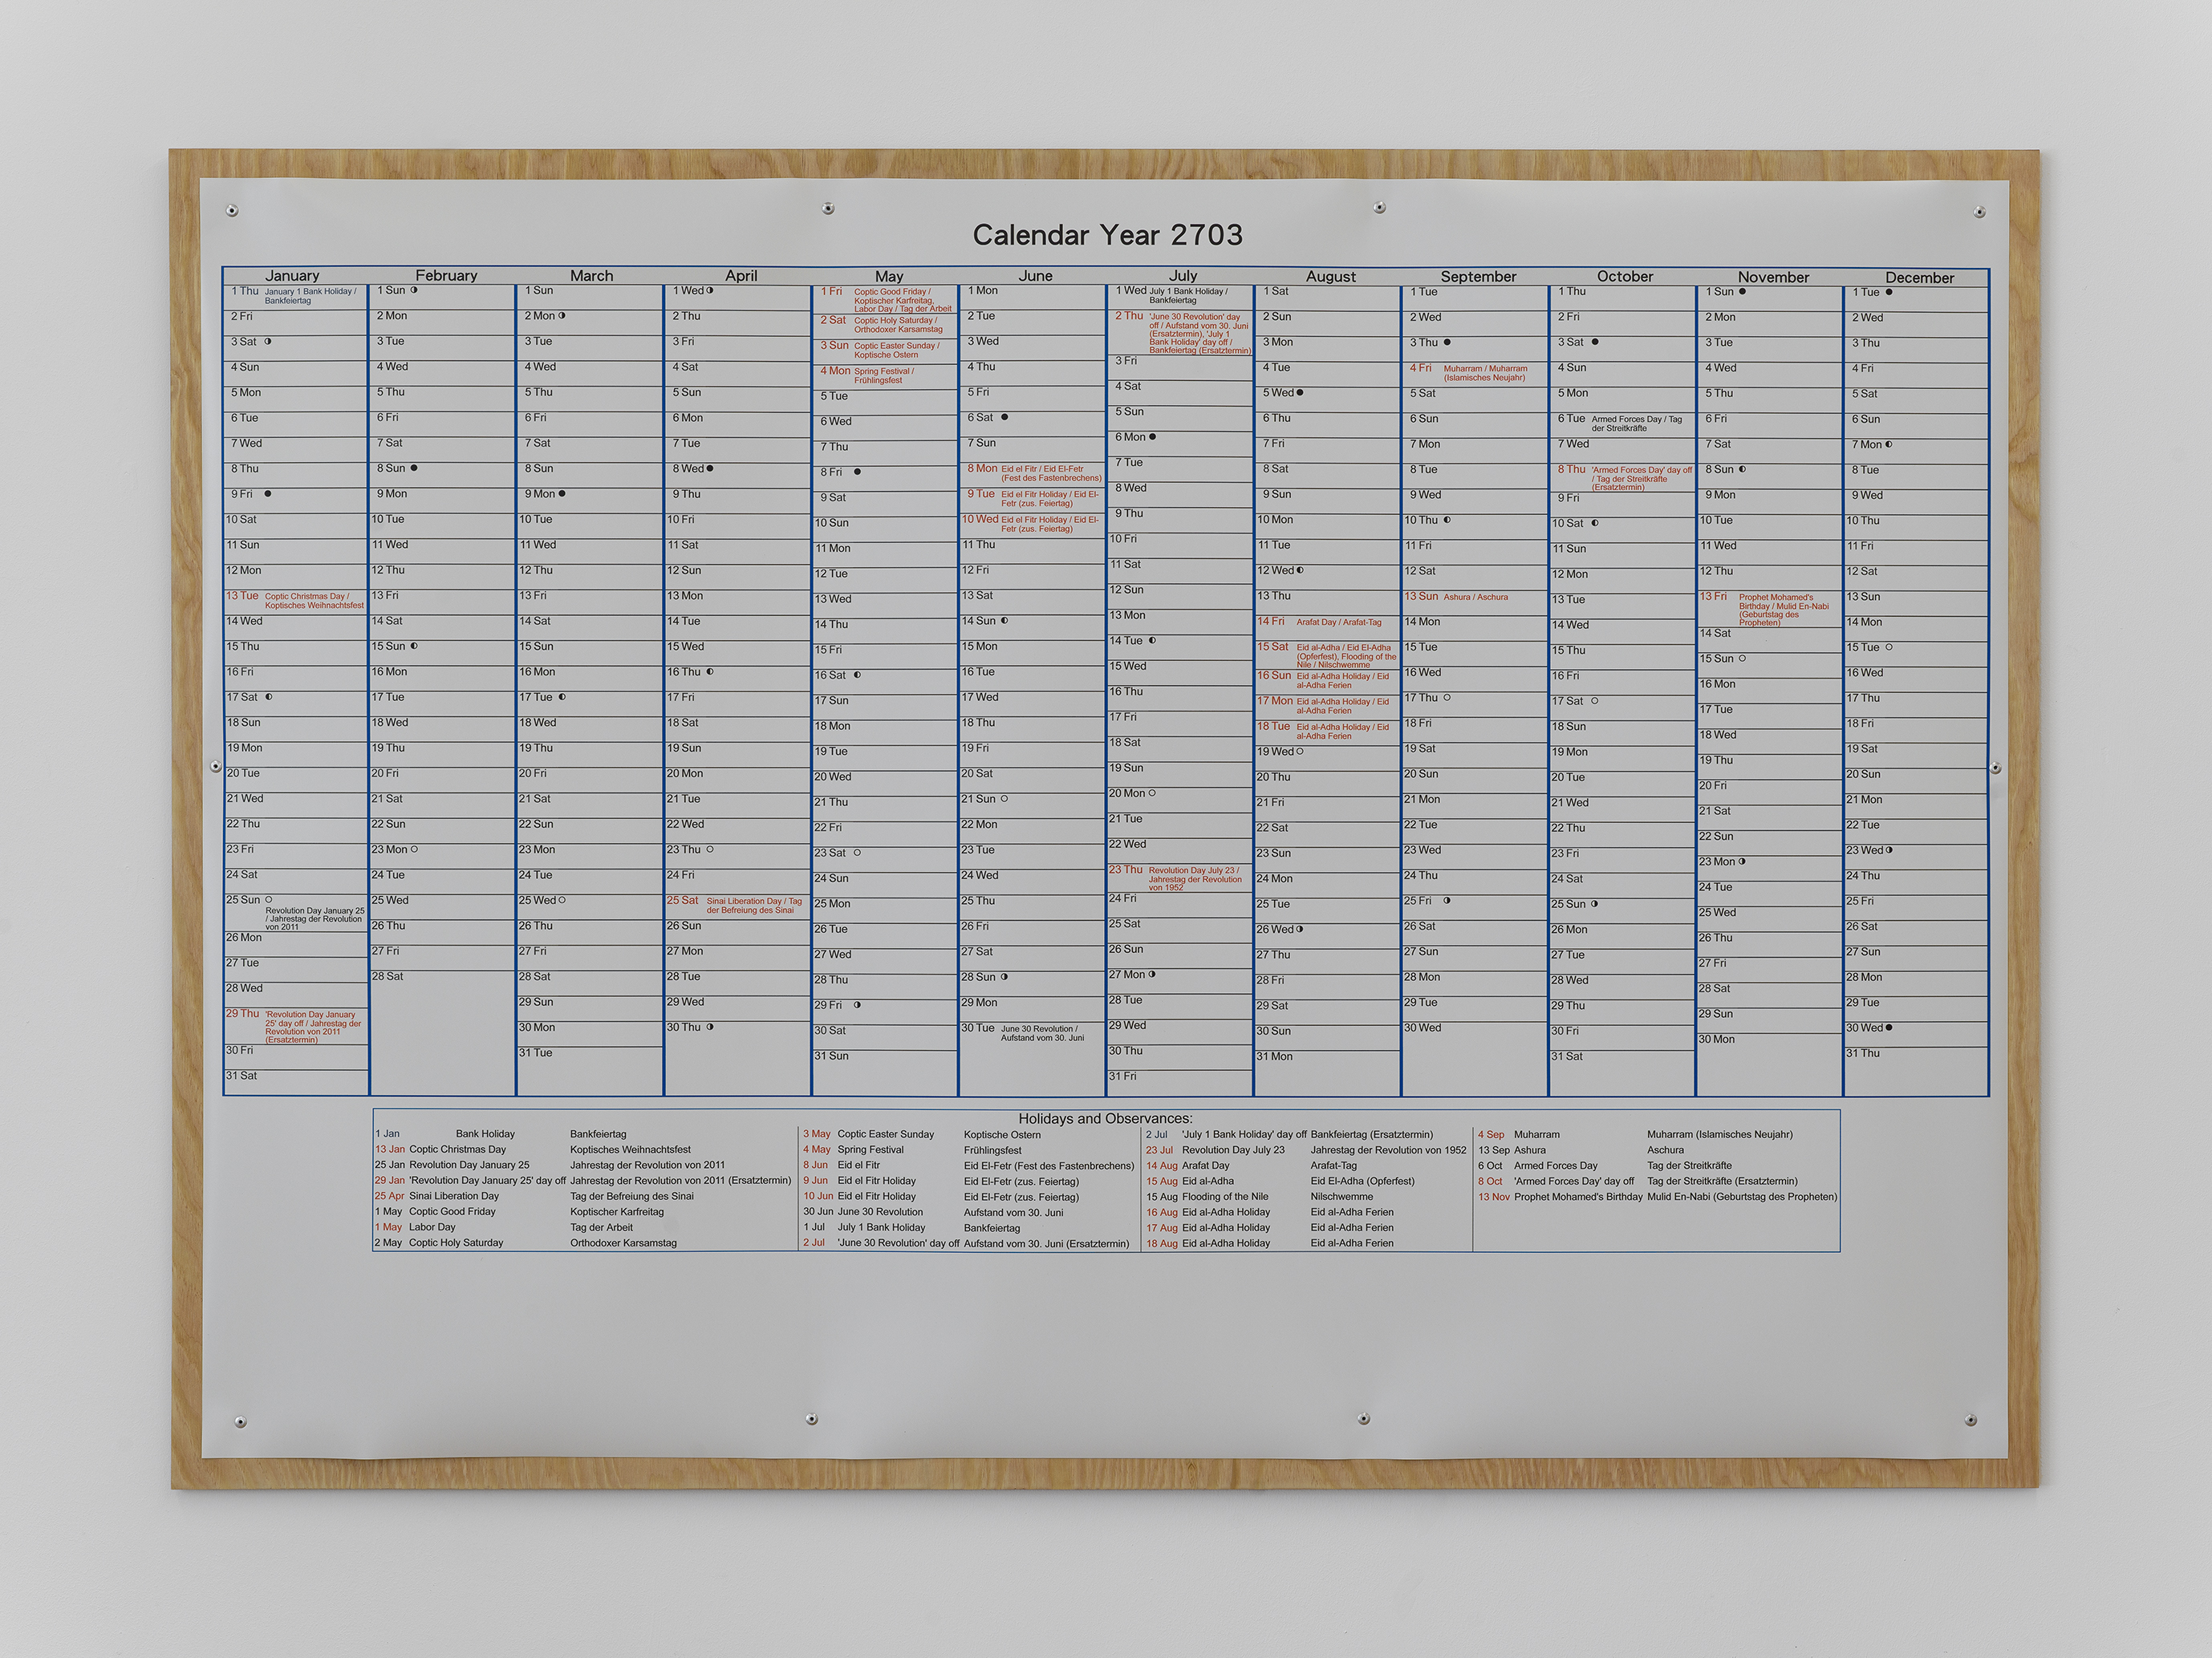 Calendar Year 2703
January
1 Thu January 1 Bank Holiday /
Bankfeiertag
2 Fri
3 Sat
4 Sun
5 Mon
6 Tue
7 Wed
8 Thu
9 Fri
10 Sat
11 Sun
12 Mon
13 Tue Coptic Christmas Day /
Koptisches Weihnachtsfest
14 Wed
15 Thu
16 Fri
17 Sat
18 Sun
19 Mon
20 Tue
21 Wed
22 Thu
23 Fri
24 Sat
25 Sun
Revolution Day January 25
/ Jahrestag der Revolution
von 2011
26 Mon
27 Tue
28 Wed
29 Thu 'Revolution Day January
25' day off / Jahrestag der
Revolution von 2011
(Ersatztermin)
30 Fri
31 Sat
February
1 Sun
2 Mon
3 Tue
4 Wed
5 Thu
6 Fri
7 Sat
8 Sun
9 Mon
10 Tue
11 Wed
12 Thu
13 Fri
14 Sat
15 Sun
16 Mon
17 Tue
18 Wed
19 Thu
20 Fri
21 Sat
22 Sun
23 Mon
24 Tue
25 Wed
26 Thu
27 Fri
28 Sat
March
1 Sun
2 Mon
3 Tue
4 Wed
5 Thu
6 Fri
7 Sat
8 Sun
9 Mon
10 Tue
11 Wed
12 Thu
13 Fri
14 Sat
15 Sun
16 Mon
17 Tue
18 Wed
19 Thu
20 Fri
21 Sat
22 Sun
23 Mon
24 Tue
25 Wed
26 Thu
27 Fri
28 Sat
29 Sun
30 Mon
31 Tue
April
1 Wed
2 Thu
3 Fri
4 Sat
5 Sun
6 Mon
7 Tue
8 Wed
9 Thu
10 Fri
11 Sat
12 Sun
13 Mon
14 Tue
15 Wed
16 Thu
17 Fri
18 Sat
19 Sun
20 Mon
21 Tue
22 Wed
23 Thu
24 Fri
25 Sat Sinai Liberation Day / Tag
der Befreiung des Sinai
26 Sun
27 Mon
28 Tue
29 Wed
30 Thu
May
1 Fri Coptic Good Friday /
Koptischer Karfreitag,
Labor Day / Tag der Arbeit
2 Sat Coptic Holy Saturday /
Orthodoxer Karsamstag
3 Sun Coptic Easter Sunday /
Koptische Ostern
4 Mon Spring Festival /
Frühlingsfest
5 Tue
6 Wed
7 Thu
8 Fri
9 Sat
10 Sun
11 Mon
12 Tue
13 Wed
14 Thu
15 Fri
16 Sat
17 Sun
18 Mon
19 Tue
20 Wed
21 Thu
22 Fri
23 Sat
24 Sun
25 Mon
26 Tue
27 Wed
28 Thu
29 Fri
30 Sat
31 Sun
June
1 Mon
2 Tue
3 Wed
4 Thu
5 Fri
6 Sat
7 Sun
8 Mon Eid el Fitr / Eid El-Fetr
(Fest des Fastenbrechens)
9 Tue Eid el Fitr Holiday / Eid El-
Fetr (zus. Feiertag)
10 Wed Eid el Fitr Holiday / Eid El-
Fetr (zus. Feiertag)
11 Thu
12 Fri
13 Sat
14 Sun
15 Mon
16 Tue
17 Wed
18 Thu
19 Fri
20 Sat
21 Sun
22 Mon
23 Tue
24 Wed
25 Thu
26 Fri
27 Sat
28 Sun
29 Mon
30 Tue June 30 Revolution /
Aufstand vom 30. Juni
July
1 Wed July 1 Bank Holiday /
Bankfeiertag
2 Thu 'June 30 Revolution' day
off / Aufstand vom 30. Juni
(Ersatztermin), 'July 1
Bank Holiday' day off /
Bankfeiertag (Ersatztermin)
3 Fri
4 Sat
5 Sun
6 Mon
7 Tue
8 Wed
9 Thu
10 Fri
11 Sat
12 Sun
13 Mon
14 Tue
15 Wed
16 Thu
17 Fri
18 Sat
19 Sun
20 Mon
21 Tue
22 Wed
23 Thu Revolution Day July 23 /
Jahrestag der Revolution
von 1952
24 Fri
25 Sat
26 Sun
27 Mon
28 Tue
29 Wed
30 Thu
31 Fri
August
1 Sat
2 Sun
3 Mon
4 Tue
5 Wed
6 Thu
7 Fri
8 Sat
9 Sun
10 Mon
11 Tue
12 Wed
13 Thu
14 Fri Arafat Day / Arafat-Tag
15 Sat Eid al-Adha / Eid El-Adha
(Opferfest), Flooding of the
Nile / Nilschwemme
16 Sun Eid al-Adha Holiday / Eid
al-Adha Ferien
17 Mon Eid al-Adha Holiday / Eid
al-Adha Ferien
18 Tue Eid al-Adha Holiday / Eid
al-Adha Ferien
19 Wed
20 Thu
21 Fri
22 Sat
23 Sun
24 Mon
25 Tue
26 Wed
27 Thu
28 Fri
29 Sat
30 Sun
31 Mon
September
1 Tue
2 Wed
3 Thu
4 Fri Muharram / Muharram
(Islamisches Neujahr)
5 Sat
6 Sun
7 Mon
8 Tue
9 Wed
10 Thu
11 Fri
12 Sat
13 Sun Ashura / Aschura
14 Mon
15 Tue
16 Wed
17 Thu
18 Fri
19 Sat
20 Sun
21 Mon
22 Tue
23 Wed
24 Thu
25 Fri
26 Sat
27 Sun
28 Mon
29 Tue
30 Wed
October
1 Thu
2 Fri
3 Sat
4 Sun
5 Mon
6 Tue Armed Forces Day / Tag
der Streitkräfte
7 Wed
8 Thu 'Armed Forces Day' day off
/ Tag der Streitkräfte
(Ersatztermin)
9 Fri
10 Sat
11 Sun
12 Mon
13 Tue
14 Wed
15 Thu
16 Fri
17 Sat
18 Sun
19 Mon
20 Tue
21 Wed
22 Thu
23 Fri
24 Sat
25 Sun
26 Mon
27 Tue
28 Wed
29 Thu
30 Fri
31 Sat
November
1 Sun
2 Mon
3 Tue
4 Wed
5 Thu
6 Fri
7 Sat
8 Sun
9 Mon
10 Tue
11 Wed
12 Thu
13 Fri Prophet Mohamed's
Birthday / Mulid En-Nabi
(Geburtstag des
Propheten)
14 Sat
15 Sun
16 Mon
17 Tue
18 Wed
19 Thu
20 Fri
21 Sat
22 Sun
23 Mon
24 Tue
25 Wed
26 Thu
27 Fri
28 Sat
29 Sun
30 Mon
December
1 Tue
2 Wed
3 Thu
4 Fri
5 Sat
6 Sun
7 Mon
8 Tue
9 Wed
10 Thu
11 Fri
12 Sat
13 Sun
14 Mon
15 Tue
16 Wed
17 Thu
18 Fri
19 Sat
20 Sun
21 Mon
22 Tue
23 Wed
24 Thu
25 Fri
26 Sat
27 Sun
28 Mon
29 Tue
30 Wed
31 Thu
Holidays and Observances:
1 Jan Bank Holiday Bankfeiertag
13 Jan Coptic Christmas Day Koptisches Weihnachtsfest
25 Jan Revolution Day January 25 Jahrestag der Revolution von 2011
29 Jan 'Revolution Day January 25' day off Jahrestag der Revolution von 2011 (Ersatztermin)
25 Apr Sinai Liberation Day Tag der Befreiung des Sinai
1 May Coptic Good Friday Koptischer Karfreitag
1 May Labor Day Tag der Arbeit
2 May Coptic Holy Saturday Orthodoxer Karsamstag
3 May Coptic Easter Sunday Koptische Ostern
4 May Spring Festival Frühlingsfest
8 Jun Eid el Fitr Eid El-Fetr (Fest des Fastenbrechens)
9 Jun Eid el Fitr Holiday Eid El-Fetr (zus. Feiertag)
10 Jun Eid el Fitr Holiday Eid El-Fetr (zus. Feiertag)
30 Jun June 30 Revolution Aufstand vom 30. Juni
1 Jul July 1 Bank Holiday Bankfeiertag
2 Jul 'June 30 Revolution' day off Aufstand vom 30. Juni (Ersatztermin)
2 Jul 'July 1 Bank Holiday' day off Bankfeiertag (Ersatztermin)
23 Jul Revolution Day July 23 Jahrestag der Revolution von 1952
14 Aug Arafat Day Arafat-Tag
15 Aug Eid al-Adha Eid El-Adha (Opferfest)
15 Aug Flooding of the Nile Nilschwemme
16 Aug Eid al-Adha Holiday Eid al-Adha Ferien
17 Aug Eid al-Adha Holiday Eid al-Adha Ferien
18 Aug Eid al-Adha Holiday Eid al-Adha Ferien
4 Sep Muharram Muharram (Islamisches Neujahr)
13 Sep Ashura Aschura
6 Oct Armed Forces Day Tag der Streitkräfte
8 Oct 'Armed Forces Day' day off Tag der Streitkräfte (Ersatztermin)
13 Nov Prophet Mohamed's Birthday Mulid En-Nabi (Geburtstag des Propheten)